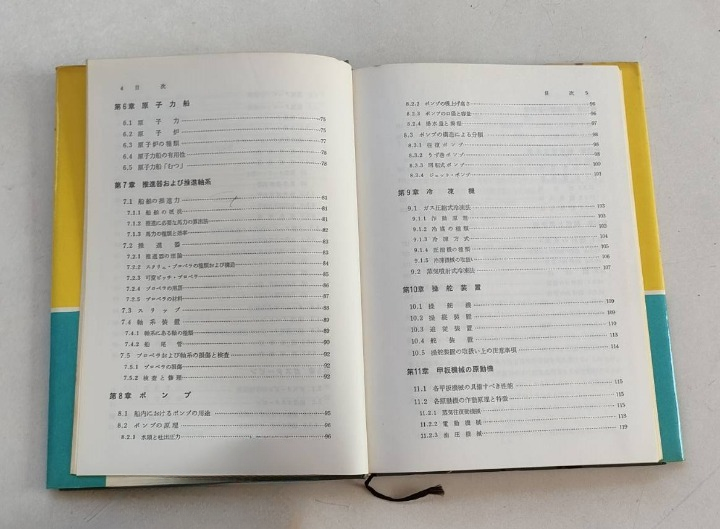 4 目 次
第6章 原子力船
6.1 原子力 75
6.2 原子炉 75
6.3 原子炉の種類 77
6.4 原子力船の有用性 78
6.5 原子力船「むつ」 78
第7章 推進器および推進軸系
7.1 船舶の推進力 81
7.1.1 船舶の抵抗 81
7.1.2 推進に必要な馬力の算出法 81
7.1.3 馬力の種類と効率 82
7.2 推進器 83
7.2.1 推進器の理論 83
7.2.2 スクリュ・プロペラの種類および構造 84
7.2.3 可変ピッチ・プロペラ 85
7.2.4 プロペラの用語 87
7.2.5 プロペラの材料 88
7.3 スリップ 89
7.4 軸系装置 89
7.4.1 軸系にある軸の種類 89
7.4.2 船尾管 90
7.5 プロペラおよび軸系の損傷と検査 92
7.5.1 プロペラの損傷 92
7.5.2 検査と修理 92
第8章 ポンプ
8.1 船内におけるポンプの用途 95
8.2 ポンプの原理 96
8.2.1 水頭と吐出圧力 96
目 次 5
8.2.2 ポンプの吸上げ高さ 96
8.2.3 ポンプの口径と容量 96
8.2.4 揚水量と揚程 97
8.3 ポンプの構造による分類 98
8.3.1 往復ポンプ 98
8.3.2 うず巻ポンプ
8.3.3 回転式ポンプ 100
8.3.4 ジェット・ポンプ 101
第9章 冷凍機
9.1 ガス圧縮式冷凍法
9.1.1 作動原理
9.1.2 冷媒の種類 103
9.1.3 冷凍方式 104
9.1.4 圧縮機の種類
9.1.5 冷凍機械の取扱い
9.2 蒸気噴射式冷凍法 107
第10章 操舵装置
10.1 操舵機 109
10.2 操縦装置 109
10.3 追従装置 110
10.4 舵装置 113
10.5 操舵装置の取扱い上の注意事項 114
第11章 甲板機械の原動機
11.1 各甲板機械の具備すべき性能 115
11.2 各原動機の作動原理と特徴 115
11.2.1 蒸気往復動機械 115
11.2.2 電動機械 117
11.2.3 油圧機械 119